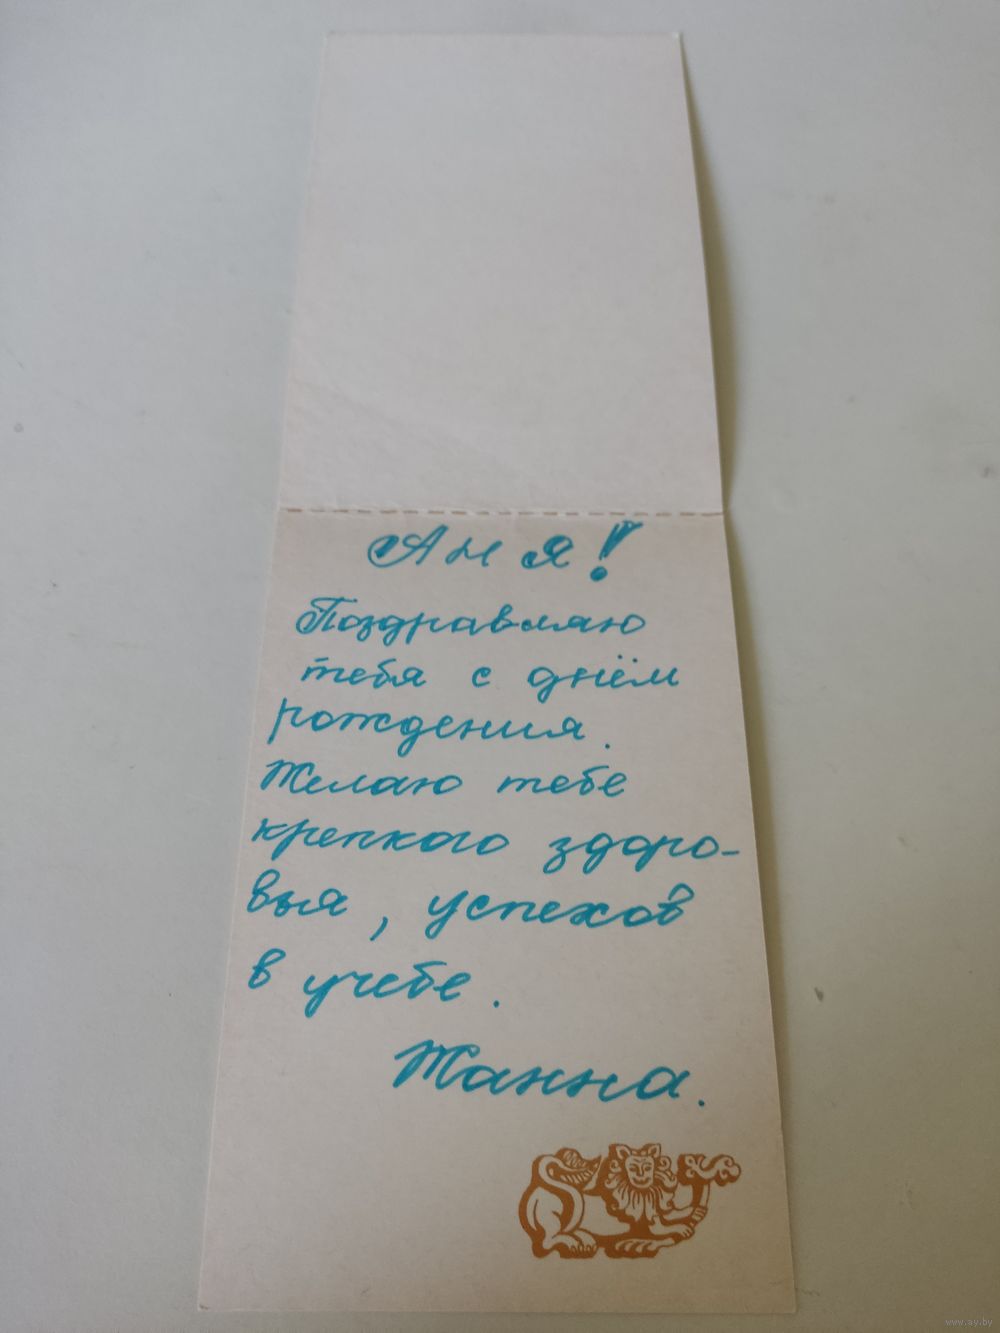 Аня!
Поздравляю
тебя с днём
рождения.
Желаю тебе
крепкого здоро-
вья, успехов
в учебе.
Жанна.
www.ay.by